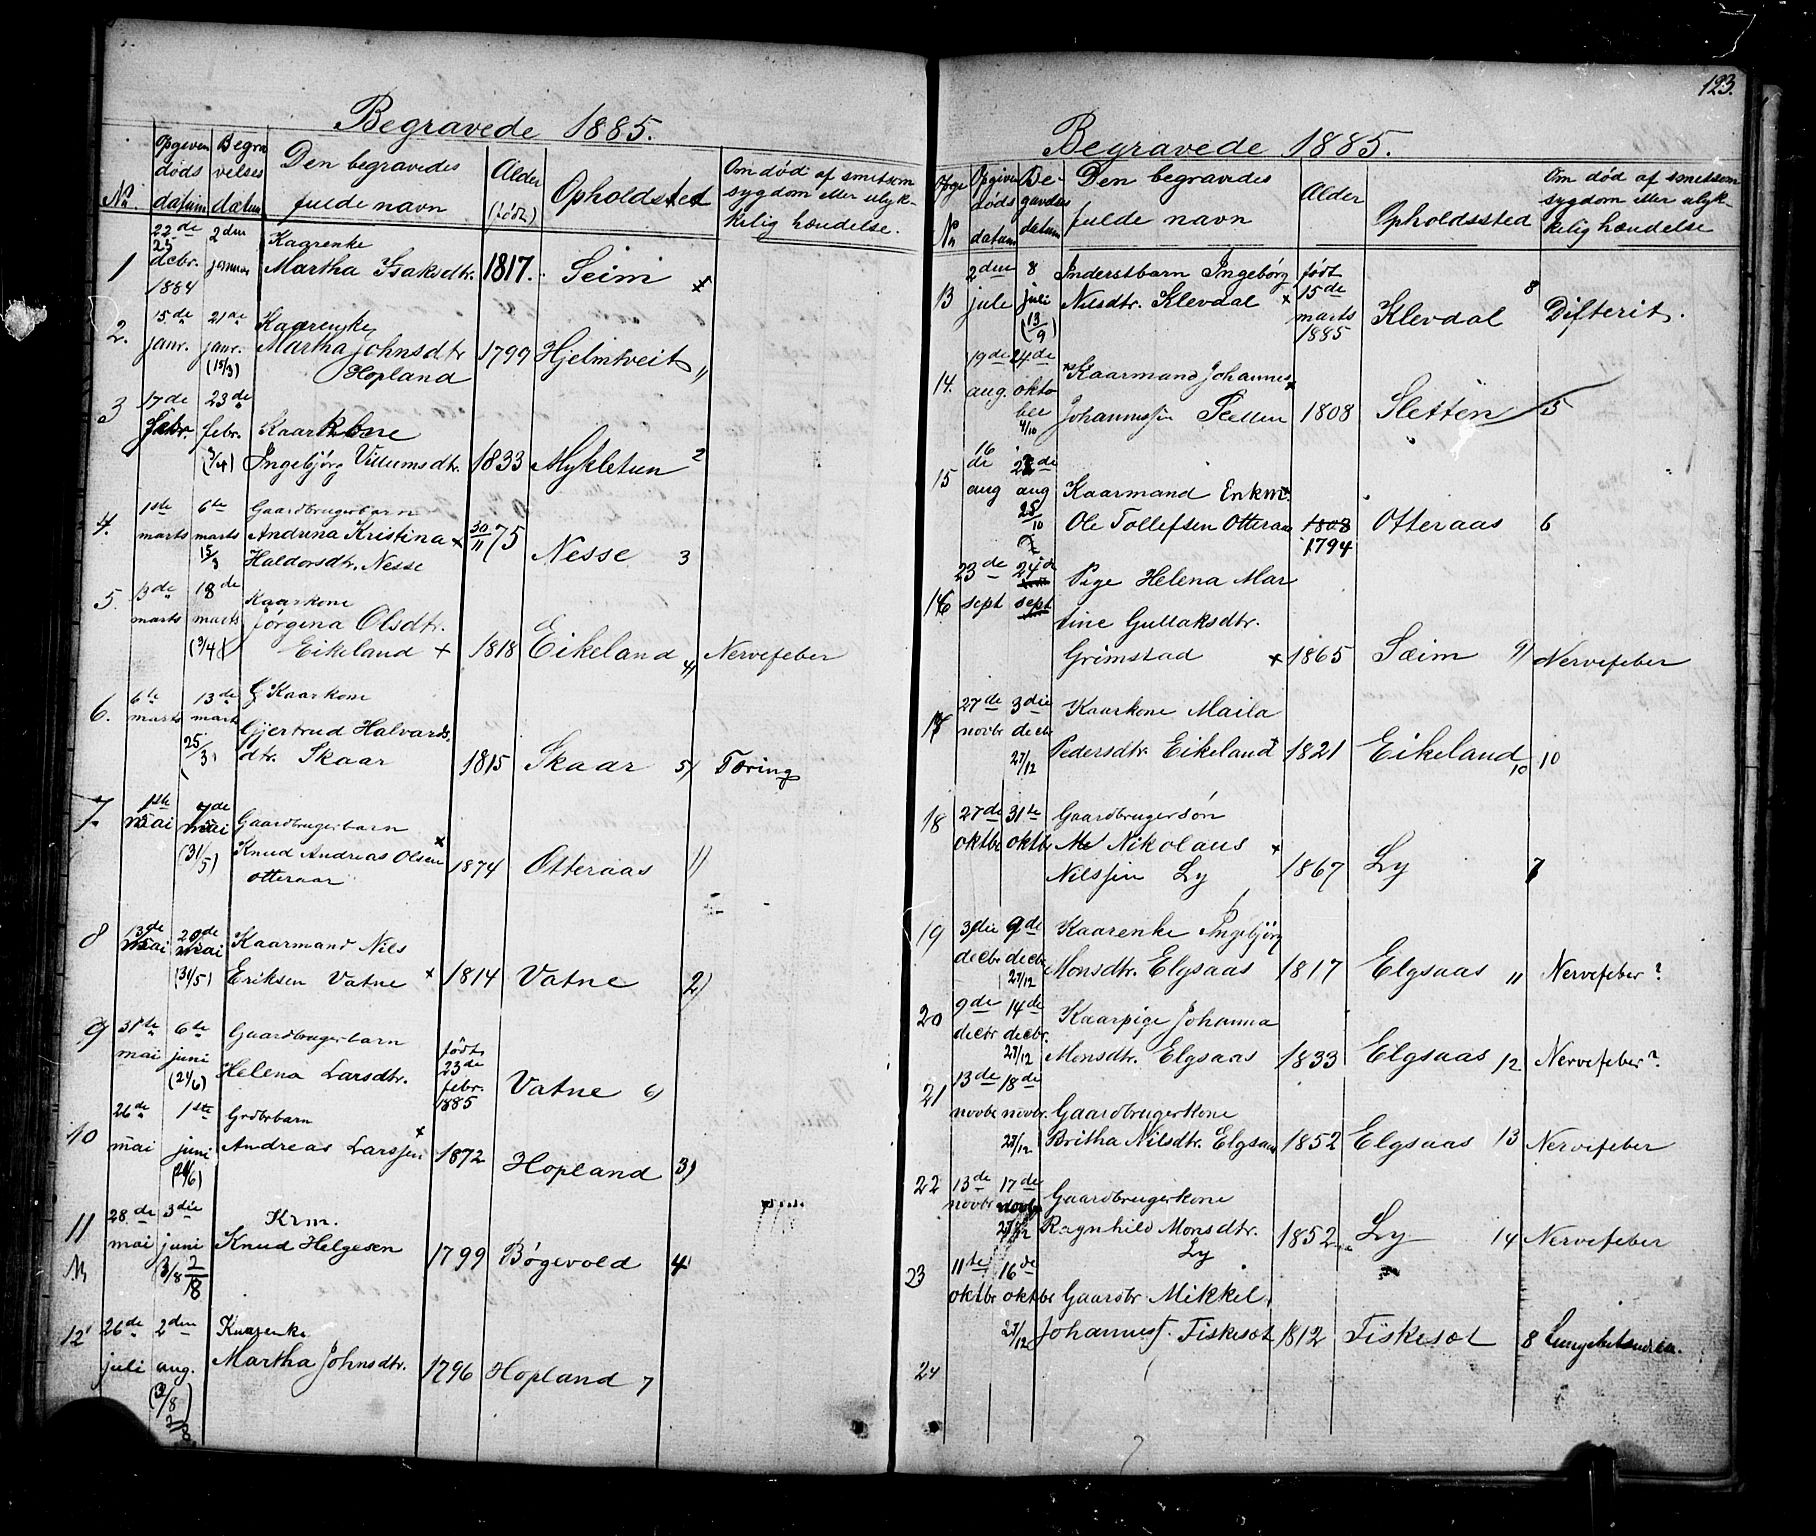 123.
Begravede 1885.
No. Opgiven døds datum Begra velses datum Den begravedes fulde navn Alder (født) Opholdsted Om død af smitsom sygdom eller ulyk- kelig hændelse.
1 decbr. 1884 2den januar Kaarenke
Martha Isaksdtr. 1817. Seim
2. 15de janr. 21de janr. (15/3) Kaarenke
Martha Johnsdtr 1799 Hjelmtveit "
Hopland
3 17de febr. 23de febr. (3/4) Kaarkone
Ingebjørg Villumsdtr. 1833 Mykletun 2
4. 1ste marts 6te marts 15/3 Gaardbrugerbarn
Andrina Kristina x 30/11 75 Nesse 3
Haldorsdtr. Nesse
5. 13de marts 18de marts (3/4) Kaarkone
Jørgina Olsdtr.
Eikeland x 1818 Eikeland 4) Nervefeber
6. 6te marts 13de marts (25/3) Kaarkone
Gjertrud Halvards-
dtr. Skaar 1815 Skaar 5) Tæring
7. 1ste mai 7de mai (31/5) Gaardbrugerbarn
Knud Andreas Olsen x 1874 Otteraas 1)
Otteraas
8 13de mai 20de mai (31/5) Kaarmand Nils
Eriksen Vatne x 1814 Vatne 2)
9 31te mai 6te juni (21/6) Gaardbrugerbarn
Helena Larsdtr. født 23de febr. 1885 Vatne 6)
10 26de mai 1ste juni Grdbrbarn
Andreas Larssen x 1872 Hopland 3)
11 28de mai 3die juni Krm.
Knud Helgesen 1799 Bøgevold 4
12 26de juli 2den aug. Kaarenke
Martha Johnsdtr. 1796 Hopland 7
Begravede 1885.
No Opgiven døds datum Be- gravdes datum Den begravedes fulde navn Alder Opholdssted Om død af smitsom sygdom eller ulyk- kelig hændelse
13 2den jule 8 juli (13/9) Inderstbarn Ingebørg
Nilsdtr. Klevdal x født 15de marts 1885 Klevdal 8 Difterit.
14. 19de aug. 24de oktober 4/10 Kaarmand Johannes x
Johannessen 1808 Sletten 5
15 16de aug 23de aug 25/10 Kaarmand Enkm.
Ole Tollefsen Otteraas 1808 1794 Otteraas 6
16 23de sept 24de sept Pige Helena Mar
tine Gullaksdtr.
Grimstad x 1865 Sæim 9) Nervefeber
17 27de novbr 3die decbr 27/12 Kaarkone Maila
Pedersdtr. Eikeland x 1821 Eikeland 10 10
18 27de oktbr 31te oktbr Gaardbrugersøn
Nikolaus x
Nilssen Ly 1867 Ly 7
19 3die decbr 9de decbr 27/12 Kaarenke Ingebjørg
Monsdtr. Elgsaas 1817 Elgsaas 11 Nervefeber?
20 9de decbr 14de decbr. 27/12 Kaarpige Johanna
Monsdtr. Elgsaas 1833 Elgsaas 12 Nervefeber?
21 13de novbr 18de novbr. 27/12 Gaardbrugerkone
Britha Nilsdtr. Elgsaas 1852 Elgsaas 13 Nervefeber
22 13de novbr 17de novbr 27/12 Gaardbrugerkone
Ragnhild Monsdtr. 1852 Ly 14 Nervefeber
Ly
23 11te oktbr 16de oktbr 27/12 Gaardbr Mikkel
Johannesf. Fiskesæt 1812 Fiskesæt 8
24